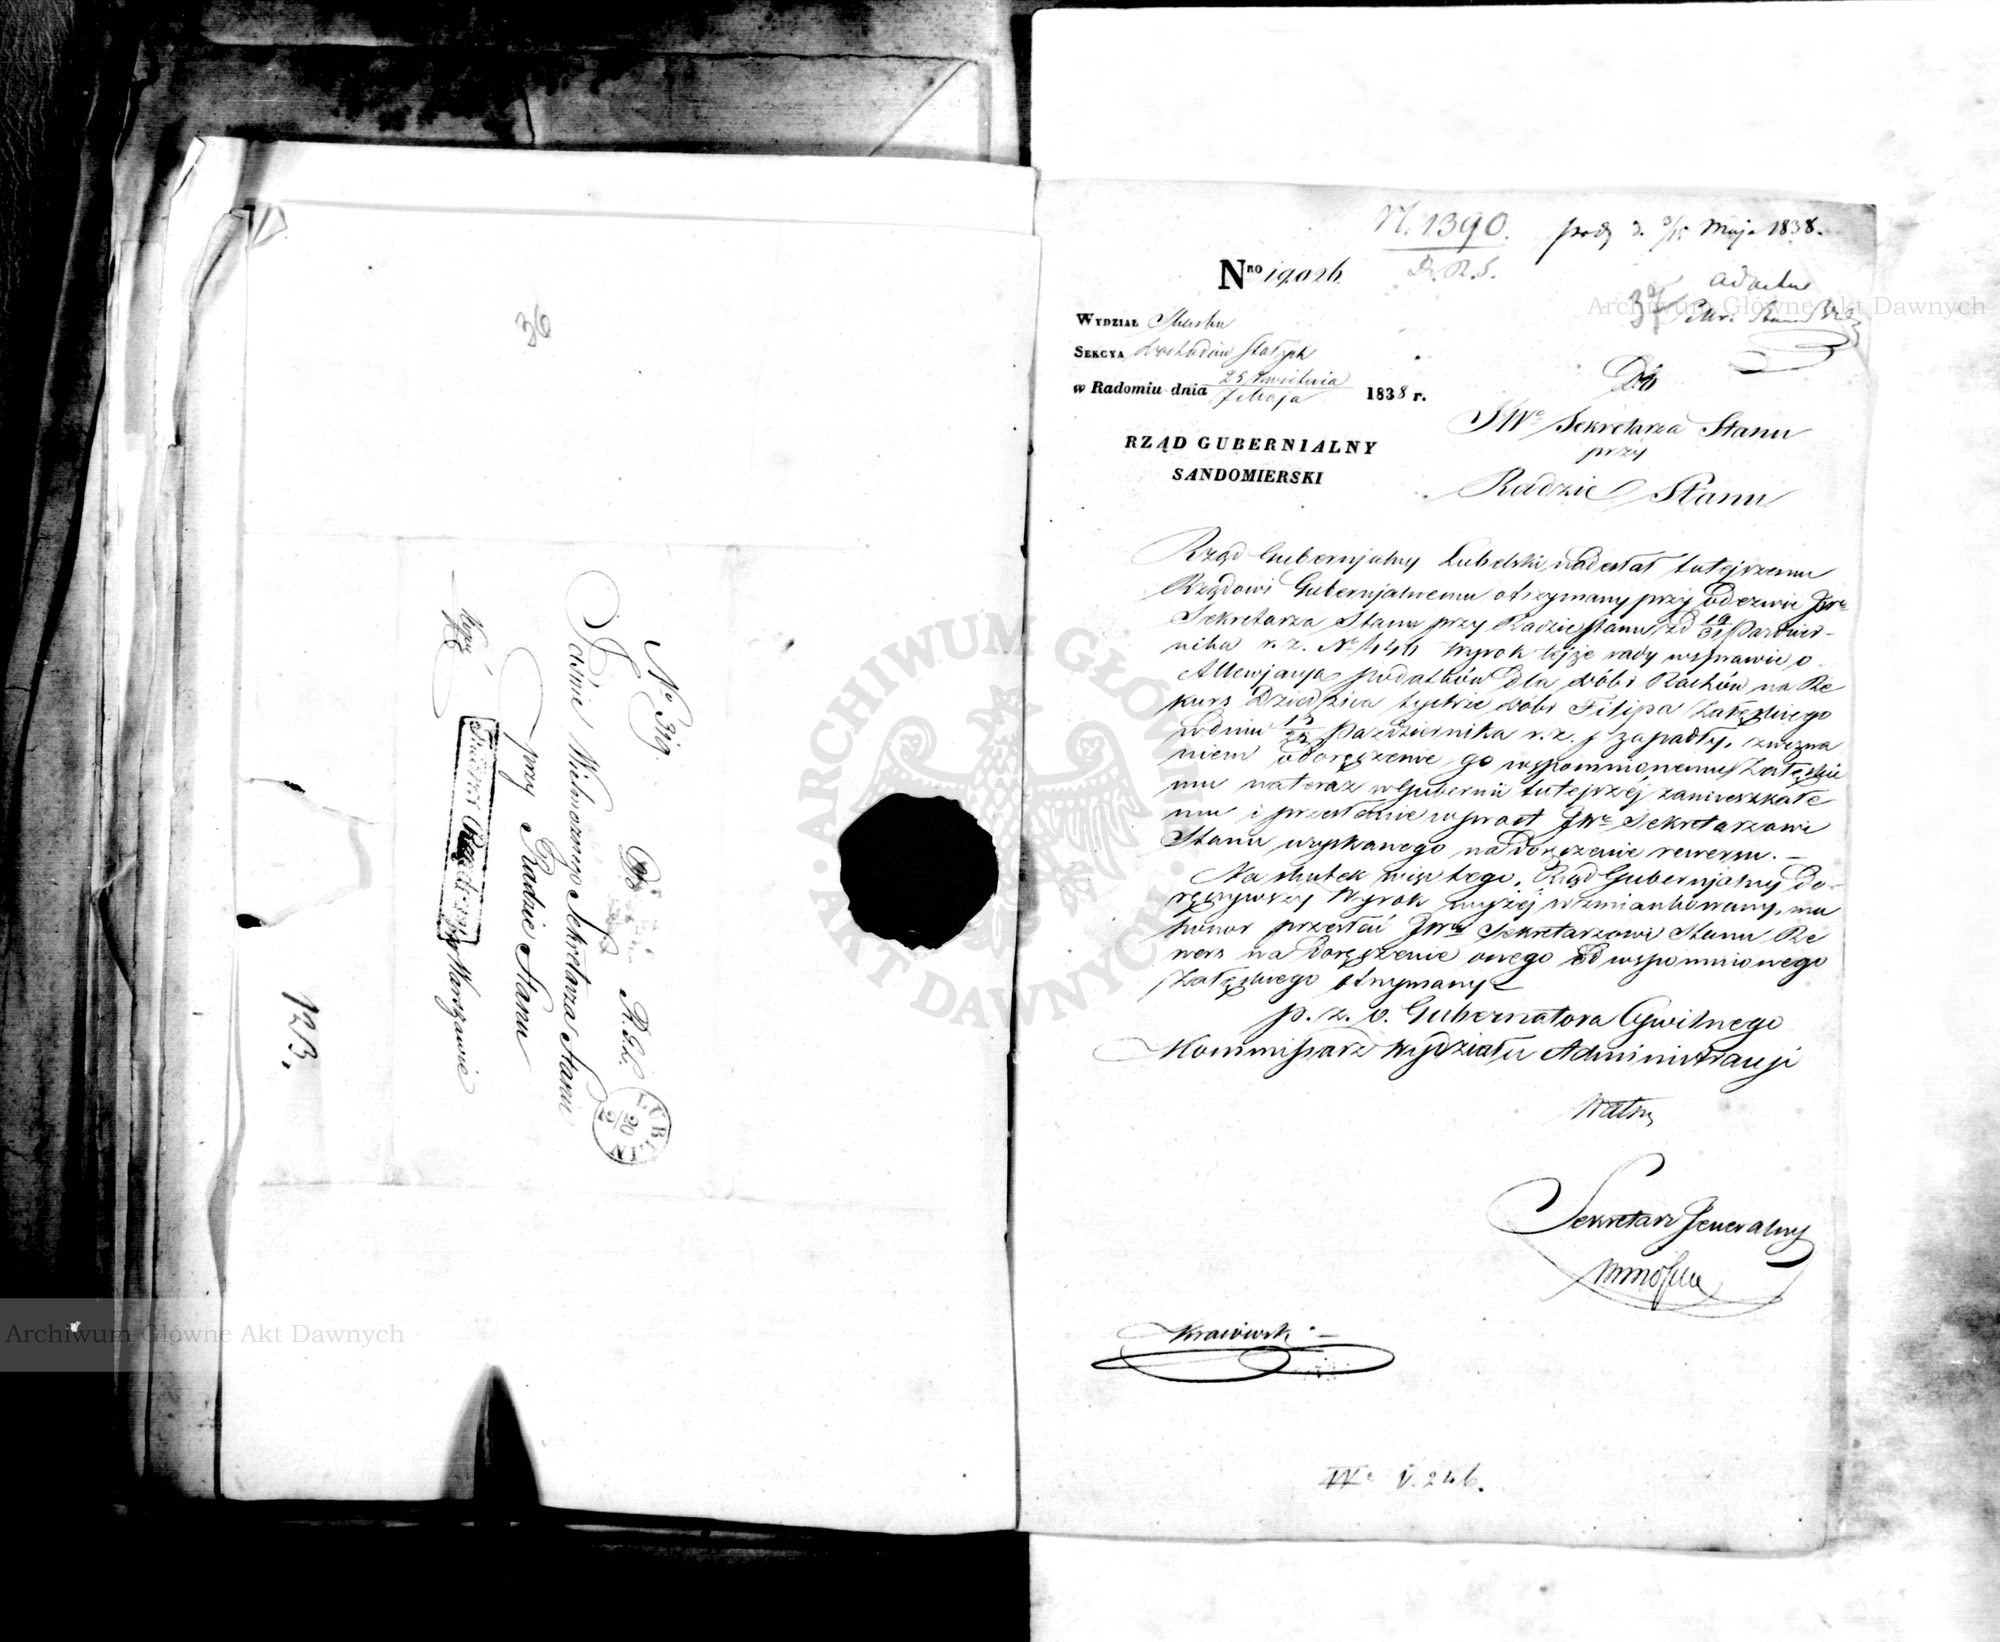 36
No 319.
Do R.S.
Jaśnie Wielmożnego Sekretarza Stanu
przy Radzie Stanu
w Warszawie
LUBLIN
20/2
123.
N. 1390.
D. R. S.
3/15 Maja 1838.
Nro 19026.
ad acta
37
WYDZIAŁ Skarbu
SEKCYA Dochodów Stałych
w Radomiu dnia 25 Kwietnia / 7 Maja 1838 r.
RZĄD GUBERNIALNY
SANDOMIERSKI
Do
JWo Sekretarza Stanu
przy
Radzie Stanu
Rząd Gubernjalny Lubelski nadesłał tutejszemu
Rządowi Gubernjalnemu otrzymany przy odezwie JWo
Sekretarza Stanu przy Radzie Stanu zd 19/31 Paździer-
nika r. z. No wyrok tejże rady wsprawie o
Allewjacyą podatków dla dóbr Rachów na Re
kurs Dziedzica tychże dobr Filipa Załęskiego
wdniu 13/25 Października r. z. zapadły, zwezwa
niem o doręczenie go wspomnionemu Załęskie
mu nateraz wGubernii tutejszéj zamieszkałe
mu i przesłanie wprost JWo Sekretarzowi
Stanu uzyskanego na doręczenie rewersu. –
Na skutek więc tego, Rząd Gubernjalny do-
ręczywszy Wyrok wyżéj wzmiankowany, ma
honor przesłać JWu Sekretarzowi Stanu Re
wers na doręczenie onego od wspomnionego
Załęskiego otrzymany
p. z. o. Gubernatora Cywilnego
Kommissarz Wydziału Administracyi
Sekretarz Generalny
246.
Archiwum Główne Akt Dawnych
Archiwum Główne Akt Dawnych
ARCHIWUM GŁÓWNE AKT DAWNYCH